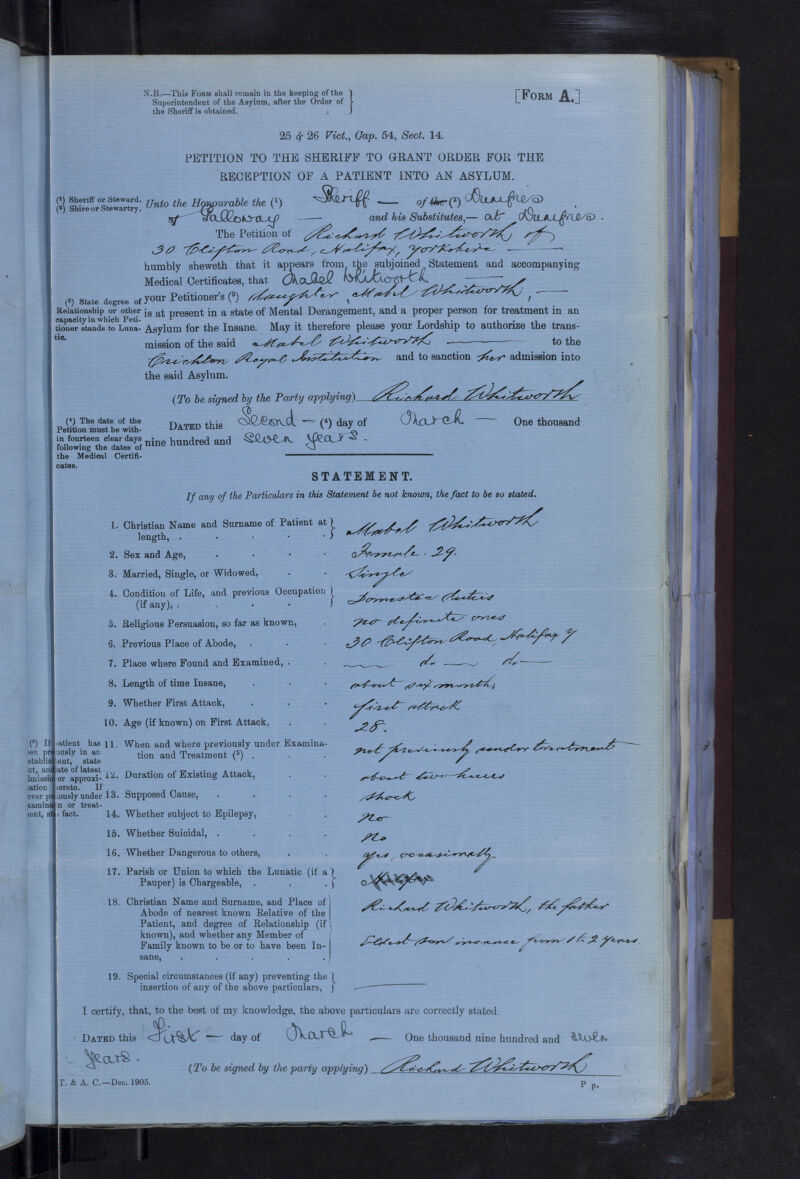 N.B.—This Form shall remain in the keeping of the
Superintendent of the Asylum, after the Order of
the Sheriff is obtained.
[Form A.]
25 & 26 Vict., Cap. 54, Sect. 14.
PETITION TO THE SHERIFF TO GRANT ORDER FOR THE
RECEPTION OF A PATIENT INTO AN ASYLUM.
(1) Sheriff or Steward.
(2) Shire or Stewartry.
Unto the Honourable the (1) Sheriff — of the (2) Dumfries
& Galloway — and his Substitutes,— at Dumfries.
The Petition of Richard Whitworth of
30 Clifton Road, Halifax, Yorkshire —
humbly sheweth that it appears from the subjoined Statement and accompanying
Medical Certificates, that Mabel Whitworth —
(3) State degree of
Relationship or other
capacity in which Peti-
tioner stands to Luna-
tic.
your Petitioner's (3) daughter, Mabel Whitworth, —
is at present in a state of Mental Derangement, and a proper person for treatment in an
Asylum for the Insane. May it therefore please your Lordship to authorize the trans-
mission of the said Mabel Whitworth — to the
Crichton Royal Institution and to sanction her admission into
the said Asylum.
(To be signed by the Party applying) Richard Whitworth
(4) The date of the
Petition must be with-
in fourteen clear days
following the dates of
the Medical Certifi-
cates.
Dated this Second — (4) day of March — One thousand
nine hundred and seven years.
STATEMENT.
If any of the Particulars in this Statement be not known, the fact to be so stated.
1. Christian Name and Surname of Patient at
length, . Mabel Whitworth
2. Sex and Age, Female. 29.
3. Married, Single, or Widowed, Single
4. Condition of Life, and previous Occupation
(if any), . Domestic duties
5. Religious Persuasion, so far as known, no definite ones
6. Previous Place of Abode, 30 Clifton Road, Halifax Y
7. Place where Found and Examined, . — do — do —
8. Length of time Insane, about six months
9. Whether First Attack, first attack
10. Age (if known) on First Attack, 28.
(5) If patient has
previously in an
ent, state
ate of latest
or approxi-
hereto. If
iously under
n or treat-
fact.
11. When and where previously under Examina-
tion and Treatment (5) . not previously under treatment
12. Duration of Existing Attack, about two hours
13. Supposed Cause, Shock
14. Whether subject to Epilepsy, No
15. Whether Suicidal, . No
16. Whether Dangerous to others, Yes, occasionally.
17. Parish or Union to which the Lunatic (if a
Pauper) is Chargeable, . Halifax
18. Christian Name and Surname, and Place of
Abode of nearest known Relative of the
Patient, and degree of Relationship (if
known), and whether any Member of
Family known to be or to have been In-
sane, Richard Whitworth, the father
Eldest son insane from 1 to 2 years
19. Special circumstances (if any) preventing the
insertion of any of the above particulars, —
I certify, that, to the best of my knowledge, the above particulars are correctly stated.
Dated this First — day of March — One thousand nine hundred and seven
years.
(To be signed by the party applying) Richard Whitworth
T. & A. C.—Dec. 1905.
P p.